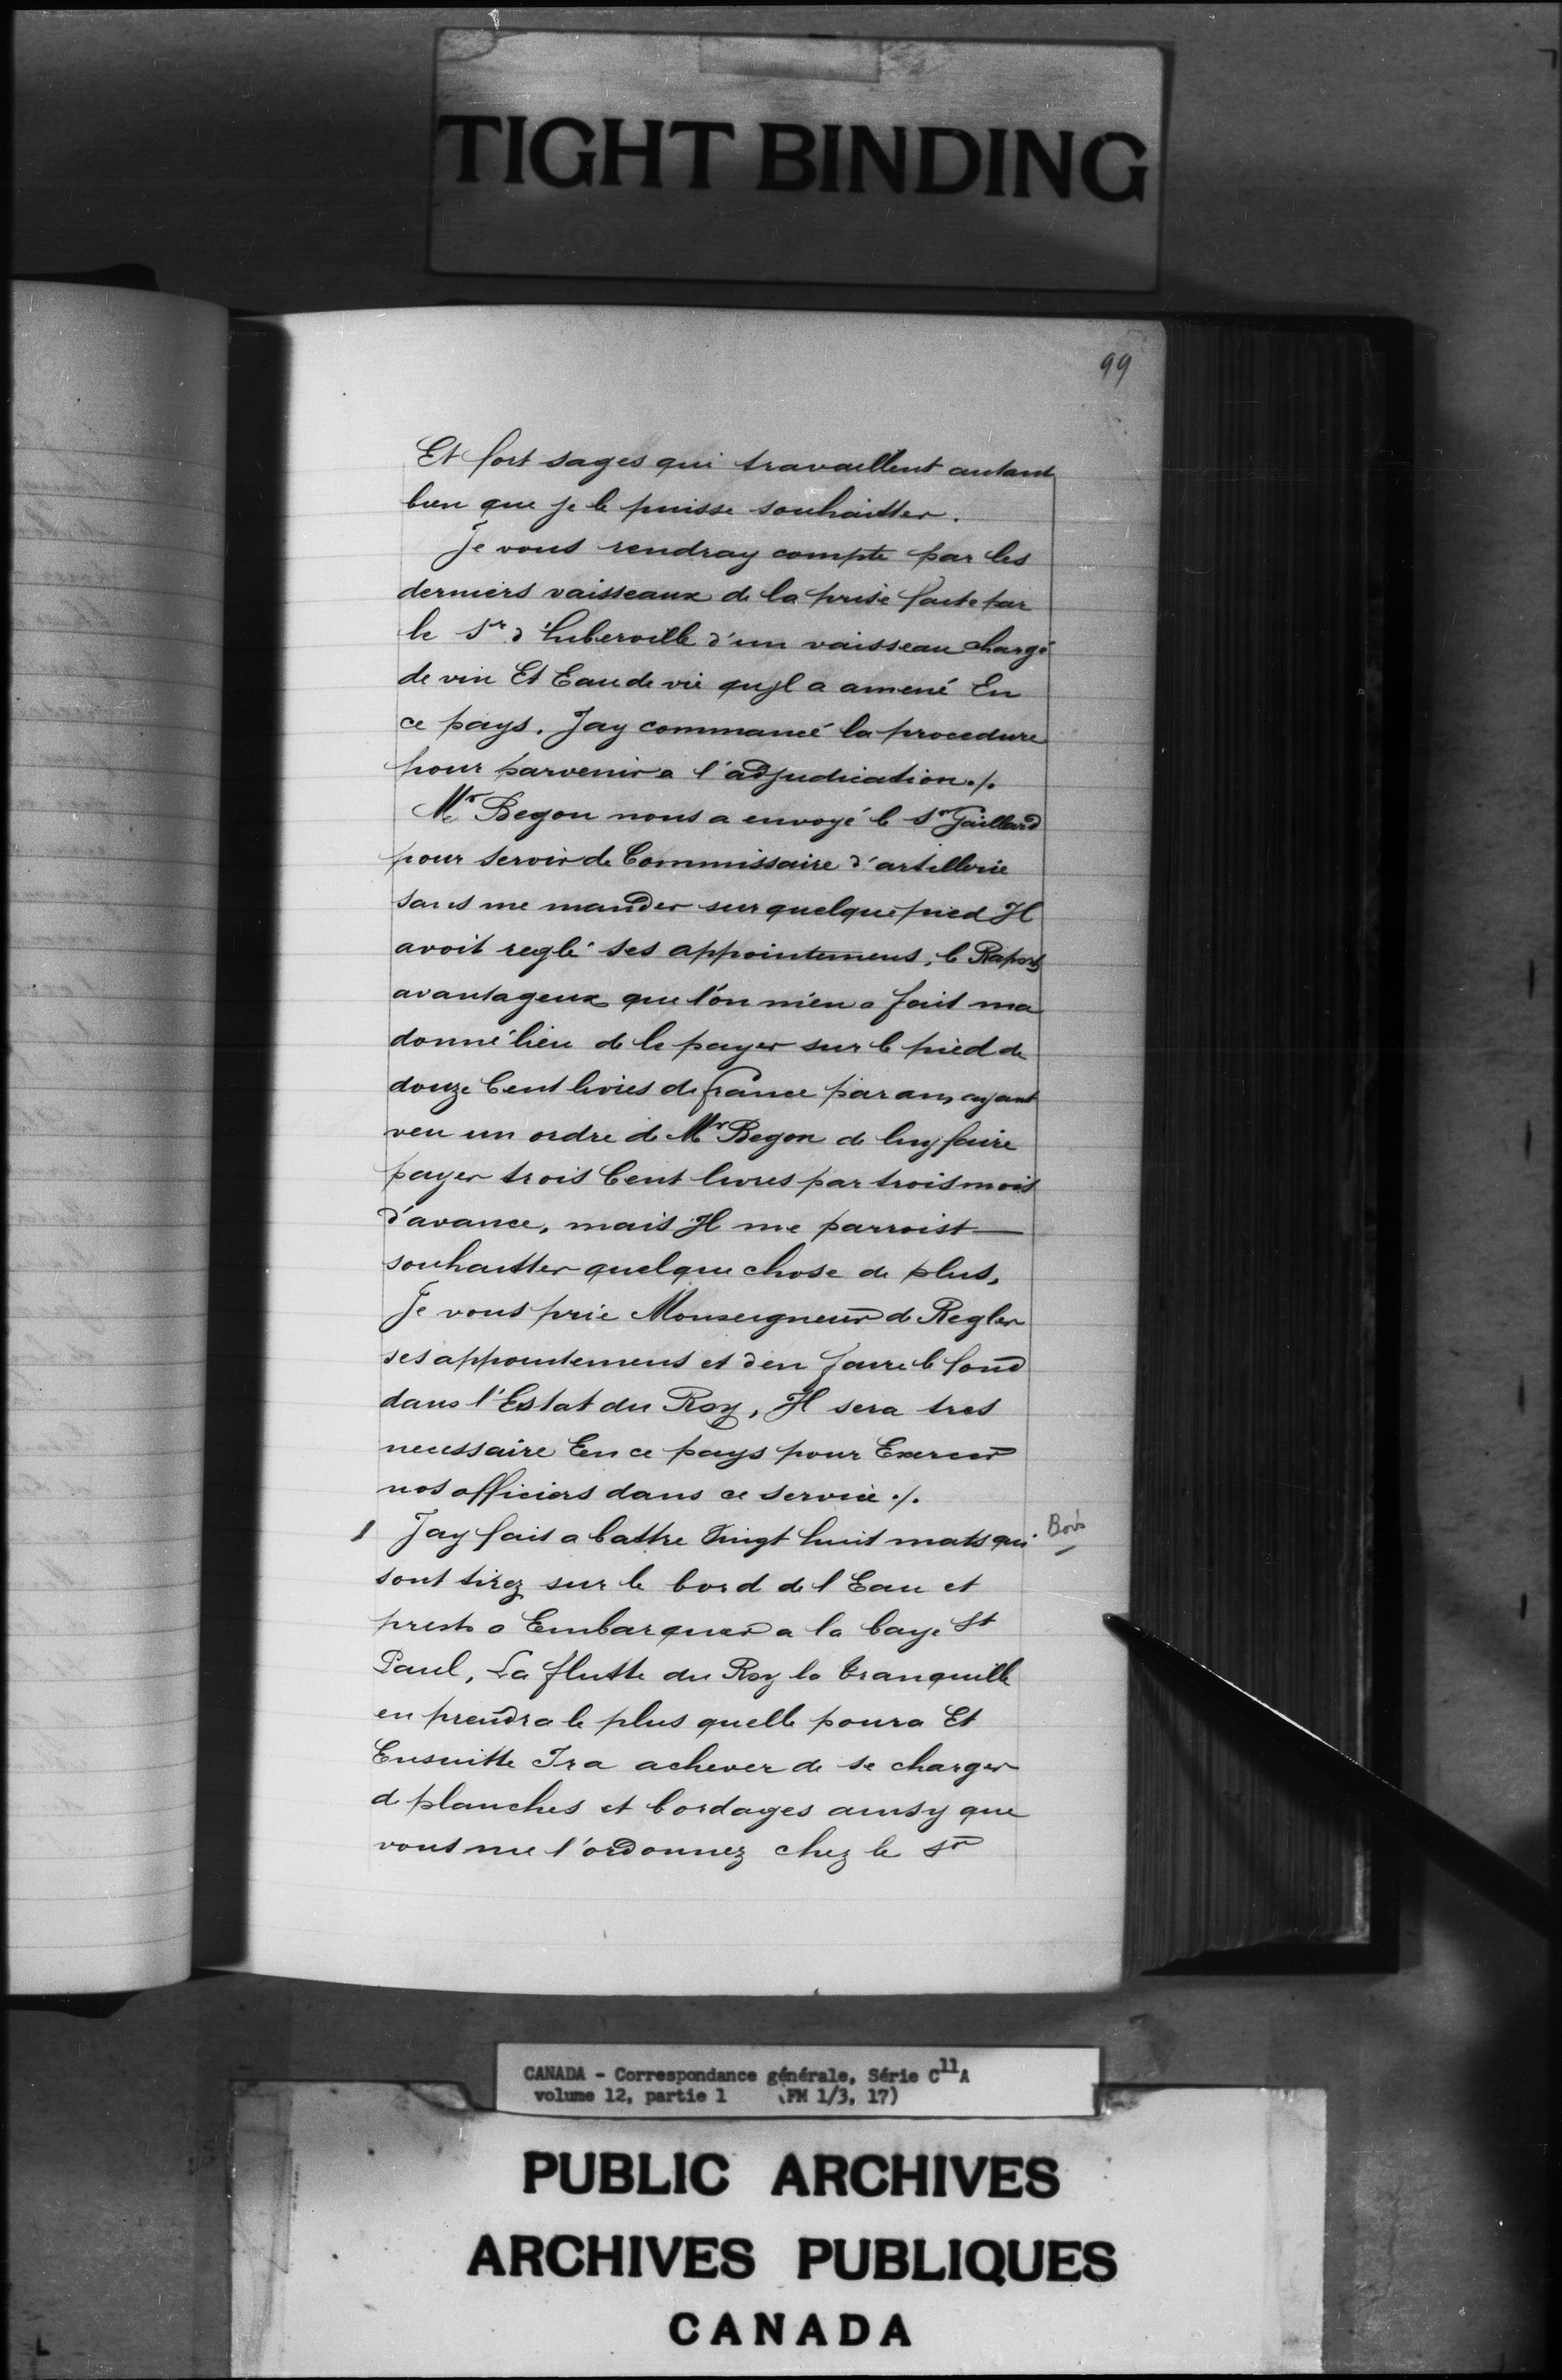 TIGHT BINDING
99
Et fort sages qui travaillent autant
bien que je le puisse souhaitter.
Je vous rendray compte par les
derniers vaisseaux de la prise faite par
le Sr d'huberville d'un vaisseau chargé
de vin Et Eau de vie qujl a amené En
ce pays. Jay commancé la procedure
pour parvenir a l'adjudication ./.
Mr Begon nous a envoyé le Sr Gaillard
pour servir de Commissaire d'artillerie
sans me mander sur quelque pied Il
avoit reglé ses appointemens, le Raport
avantageux que l'on m'en a fait ma
donné lieu de le payer sur le pied de
douze Cent livres de france par an, ayant
veu un ordre de Mr Begon de luy faire
payer trois Cent livres par trois mois
d'avance, mais Il me parroist
souhaitter quelque chose de plus,
Je vous prie Monseigneur de Regler
ses appointemens et d'en faire le fond
dans l'Estat du Roy, Il sera tres
necessaire En ce pays pour Exercer
nos officiers dans ce service ./.
Jay fait abattre Vingt huit mats qui Bois
sont tirez sur le bord de l Eau et
prests a Embarquer a la baye St
Paul, La flutte du Roy la tranquille
en prendra le plus quelle poura Et
Ensuitte Ira achever de se charger
de planches et bordages ainsy que
vous me l'ordonnez chez le Sr
CANADA - Correspondance générale, Série C11A
volume 12, partie 1 (FM 1/3, 17)
PUBLIC ARCHIVES
ARCHIVES PUBLIQUES
CANADA